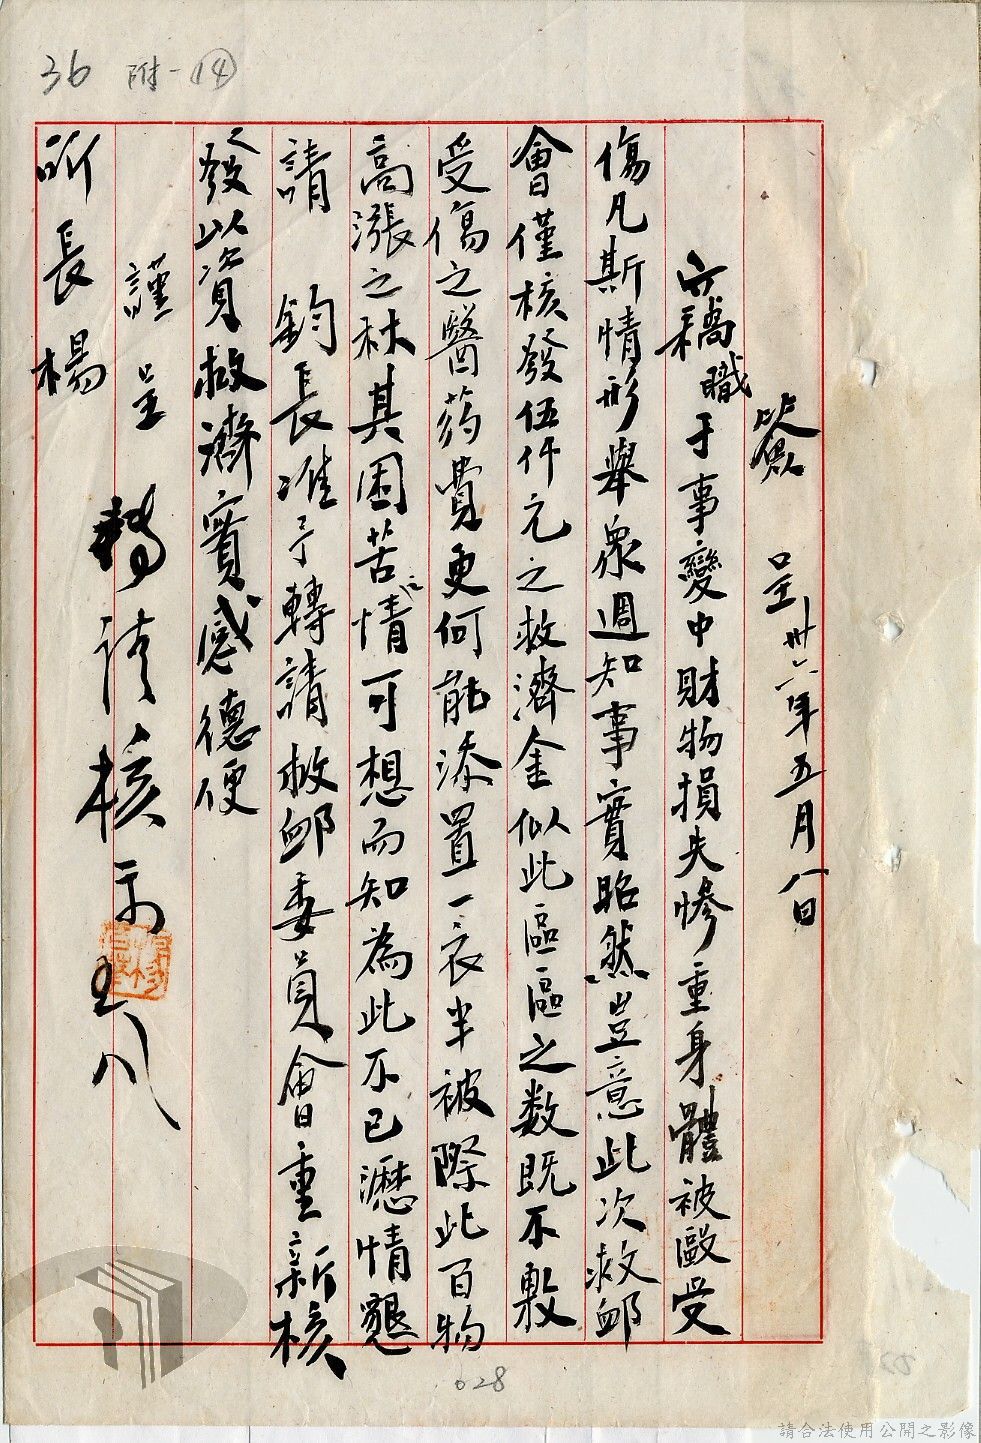 36 附-14
簽呈 卅六年五月八日
竊職于事變中財物損失慘重身體被毆受
傷凡斯情形舉眾週知事實昭然豈意此次救卹
會僅核發伍仟元之救濟金似此區區之数既不敷
受傷之醫药費更何能添置一衣半被際此百物
高漲之秋其困苦情可想而知為此不已瀝情懇
請 鈞長准予轉請救卹委員會重新核
發以資救濟實感德便
謹呈
所長楊
轉請核示 五八
628
請合法使用公開之影像